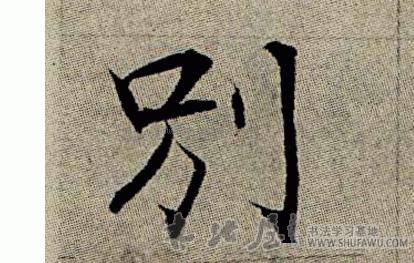 别
书法学习基地
WWW.SHUFAWU.COM